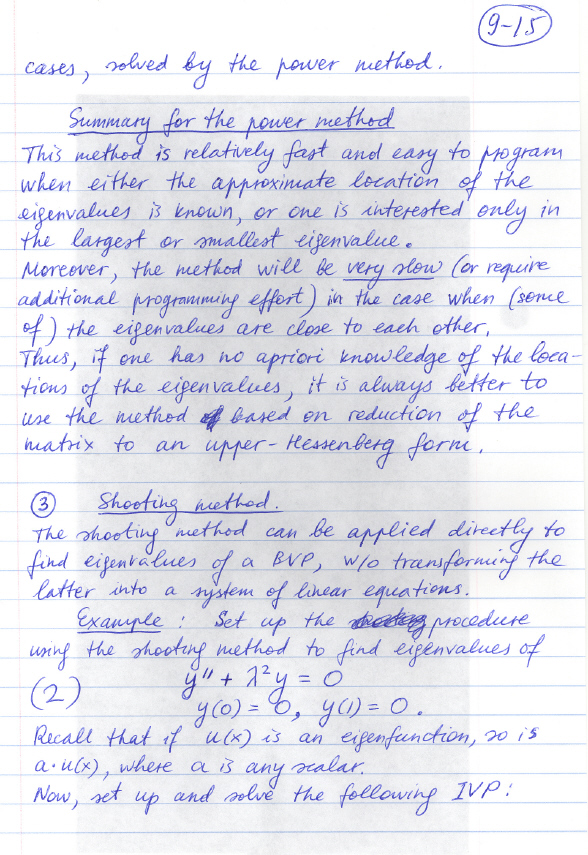 9-15
cases, solved by the power method.
Summary for the power method
This method is relatively fast and easy to program
when either the approximate location of the
eigenvalues is known, or one is interested only in
the largest or smallest eigenvalue.
Moreover, the method will be very slow (or require
additional programming effort) in the case when (some
of) the eigenvalues are close to each other.
Thus, if one has no apriori knowledge of the loca-
tions of the eigenvalues, it is always better to
use the method based on reduction of the
matrix to an upper-Hessenberg form.
③ Shooting method.
The shooting method can be applied directly to
find eigenvalues of a BVP, w/o transforming the
latter into a system of linear equations.
Example: Set up the procedure
using the shooting method to find eigenvalues of
y'' + λ²y = 0
(2)
y(0) = 0, y(1) = 0.
Recall that if u(x) is an eigenfunction, so is
a·u(x), where a is any scalar.
Now, set up and solve the following IVP: